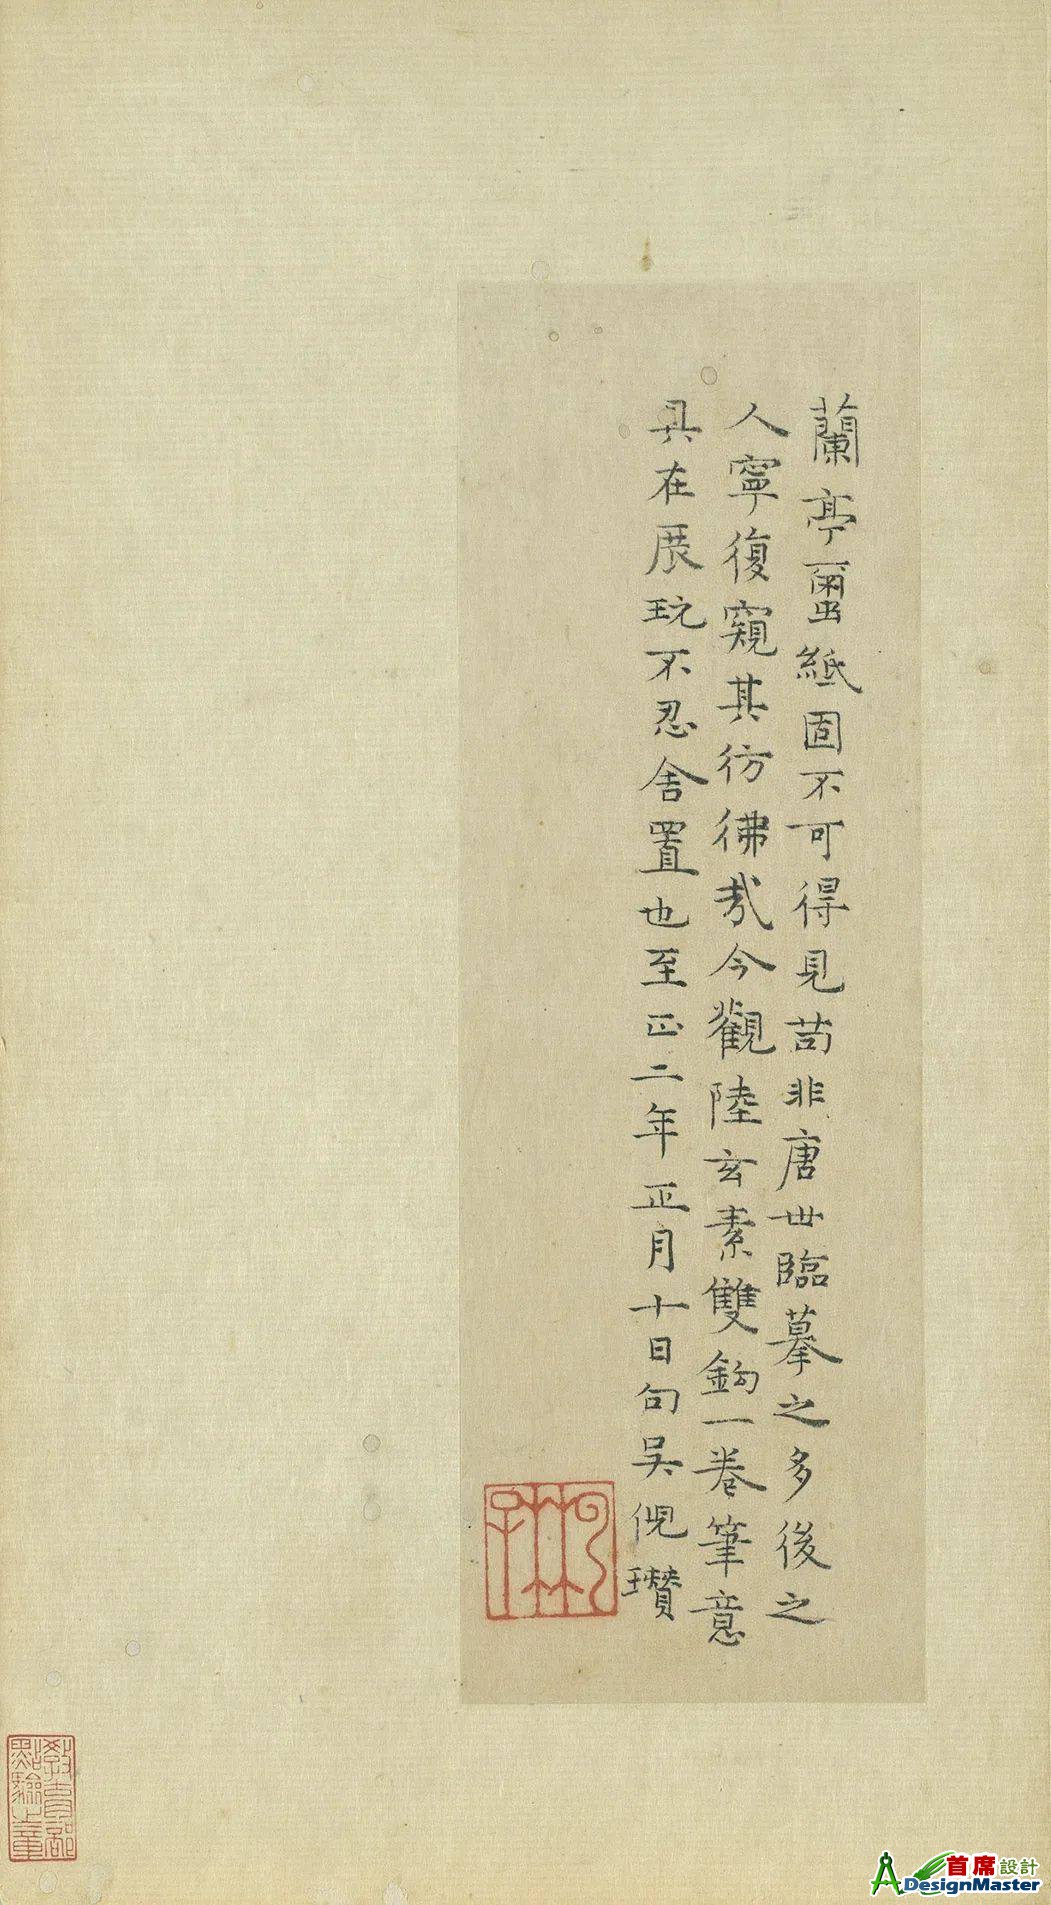 蘭亭璽紙固不可得見苟非唐世臨摹之多後之
人寧復窺其彷彿哉今觀陸玄素雙鈎一卷筆意
具在展玩不忍舍置也至正二年正月十日句吳倪瓚
教育部
點驗之章
首席設計
DesignMaster